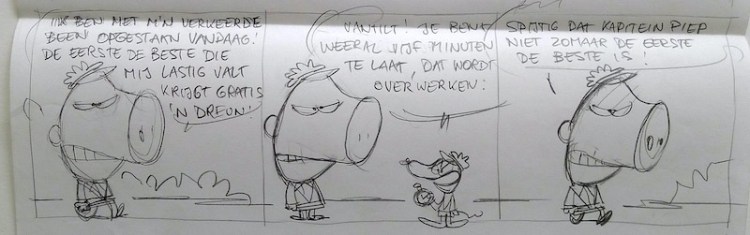 IK BEN MET M'N VERKEERDE
BEEN OPGESTAAN VANDAAG!
DE EERSTE DE BESTE DIE
MIJ LASTIG VALT
KRIJGT GRATIS
'N DREUN!
VANTILT! JE BENT
WEERAL VIJF MINUTEN
TE LAAT, DAT WORDT
OVERWERKEN!
SPIJTIG DAT KAPITEIN PIEP
NIET ZOMAAR DE EERSTE
DE BESTE IS!